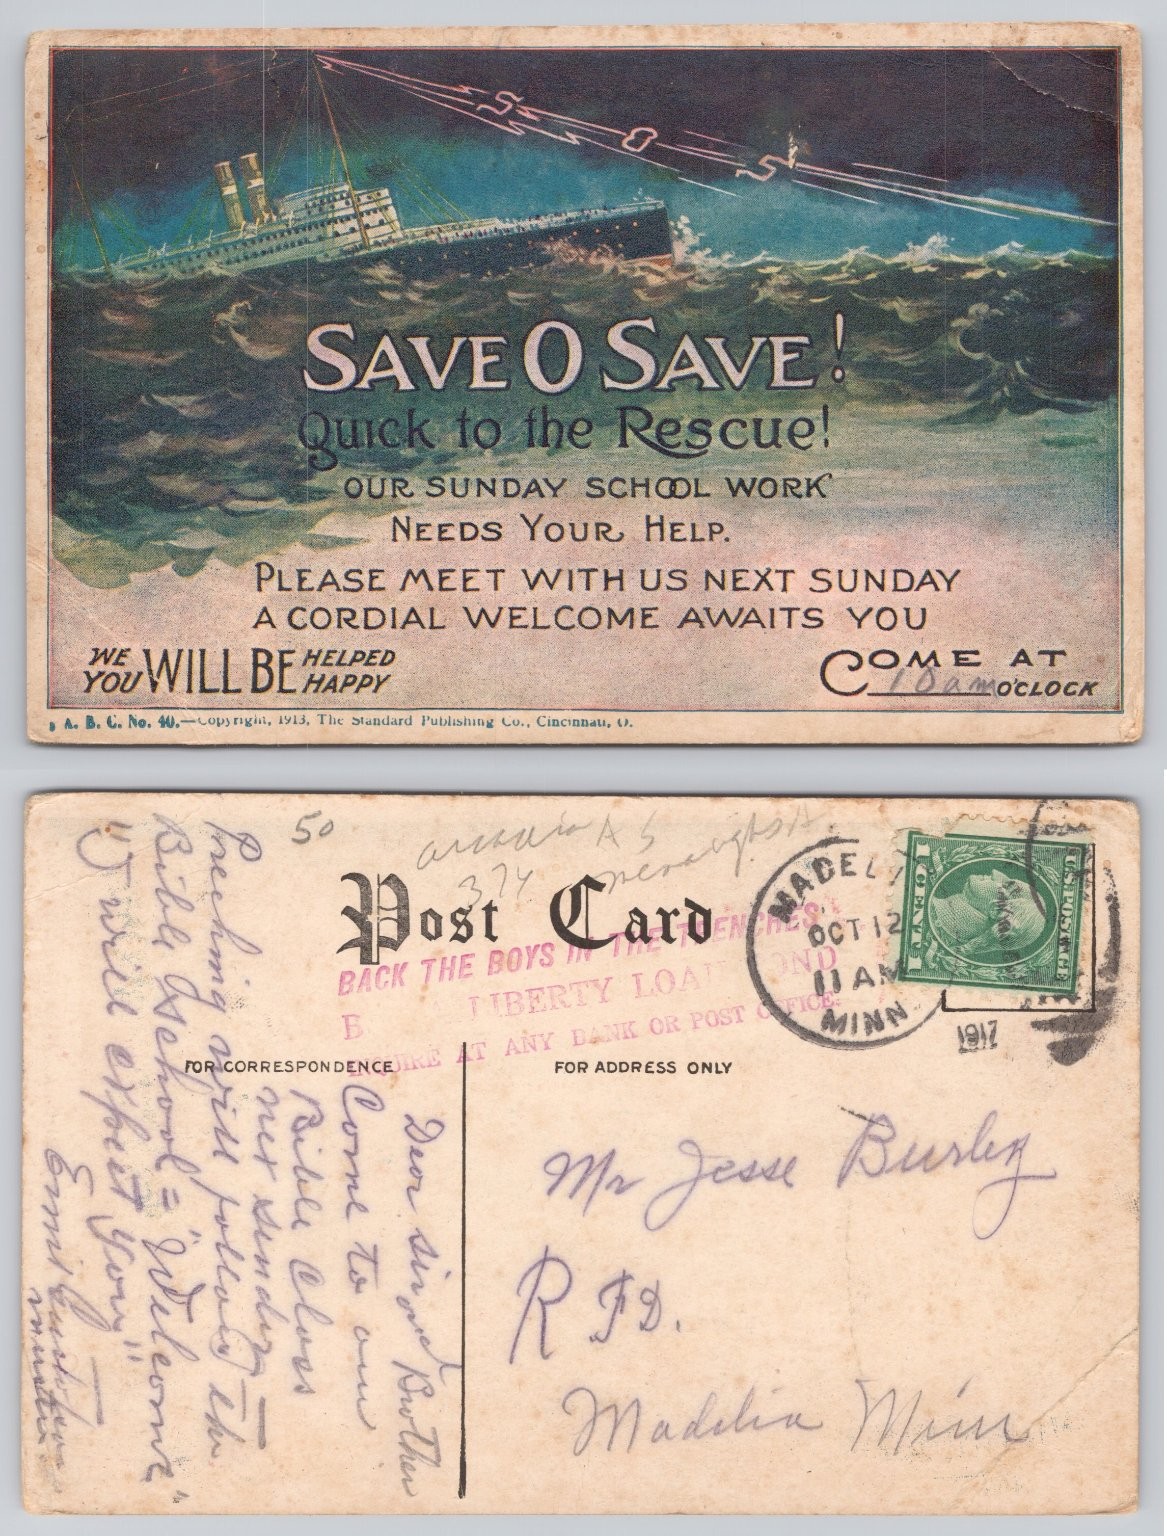 S O S
SAVE O SAVE!
Quick to the Rescue!
OUR SUNDAY SCHOOL WORK
NEEDS YOUR HELP.
PLEASE MEET WITH US NEXT SUNDAY
A CORDIAL WELCOME AWAITS YOU
WE YOU WILL BE HELPED HAPPY
COME AT
10 am O'CLOCK
A. B. C. No. 40.—Copyright, 1913, The Standard Publishing Co., Cincinnati, O.
50
374
Post Card
MADEL
OCT 12
11 AM
MINN
1917
BACK THE BOYS IN THE TRENCHES
B LIBERTY LOAN BOND
INQUIRE AT ANY BANK OR POST OFFICE.
FOR CORRESPONDENCE
FOR ADDRESS ONLY
Dear sir and Brother
Come to our
Bible Class
next sunday —
Preching will follow the
Bible School = "Welcome"
"I will expect You"
minister
Mr Jesse Burley
R F D.
Madelia Minn